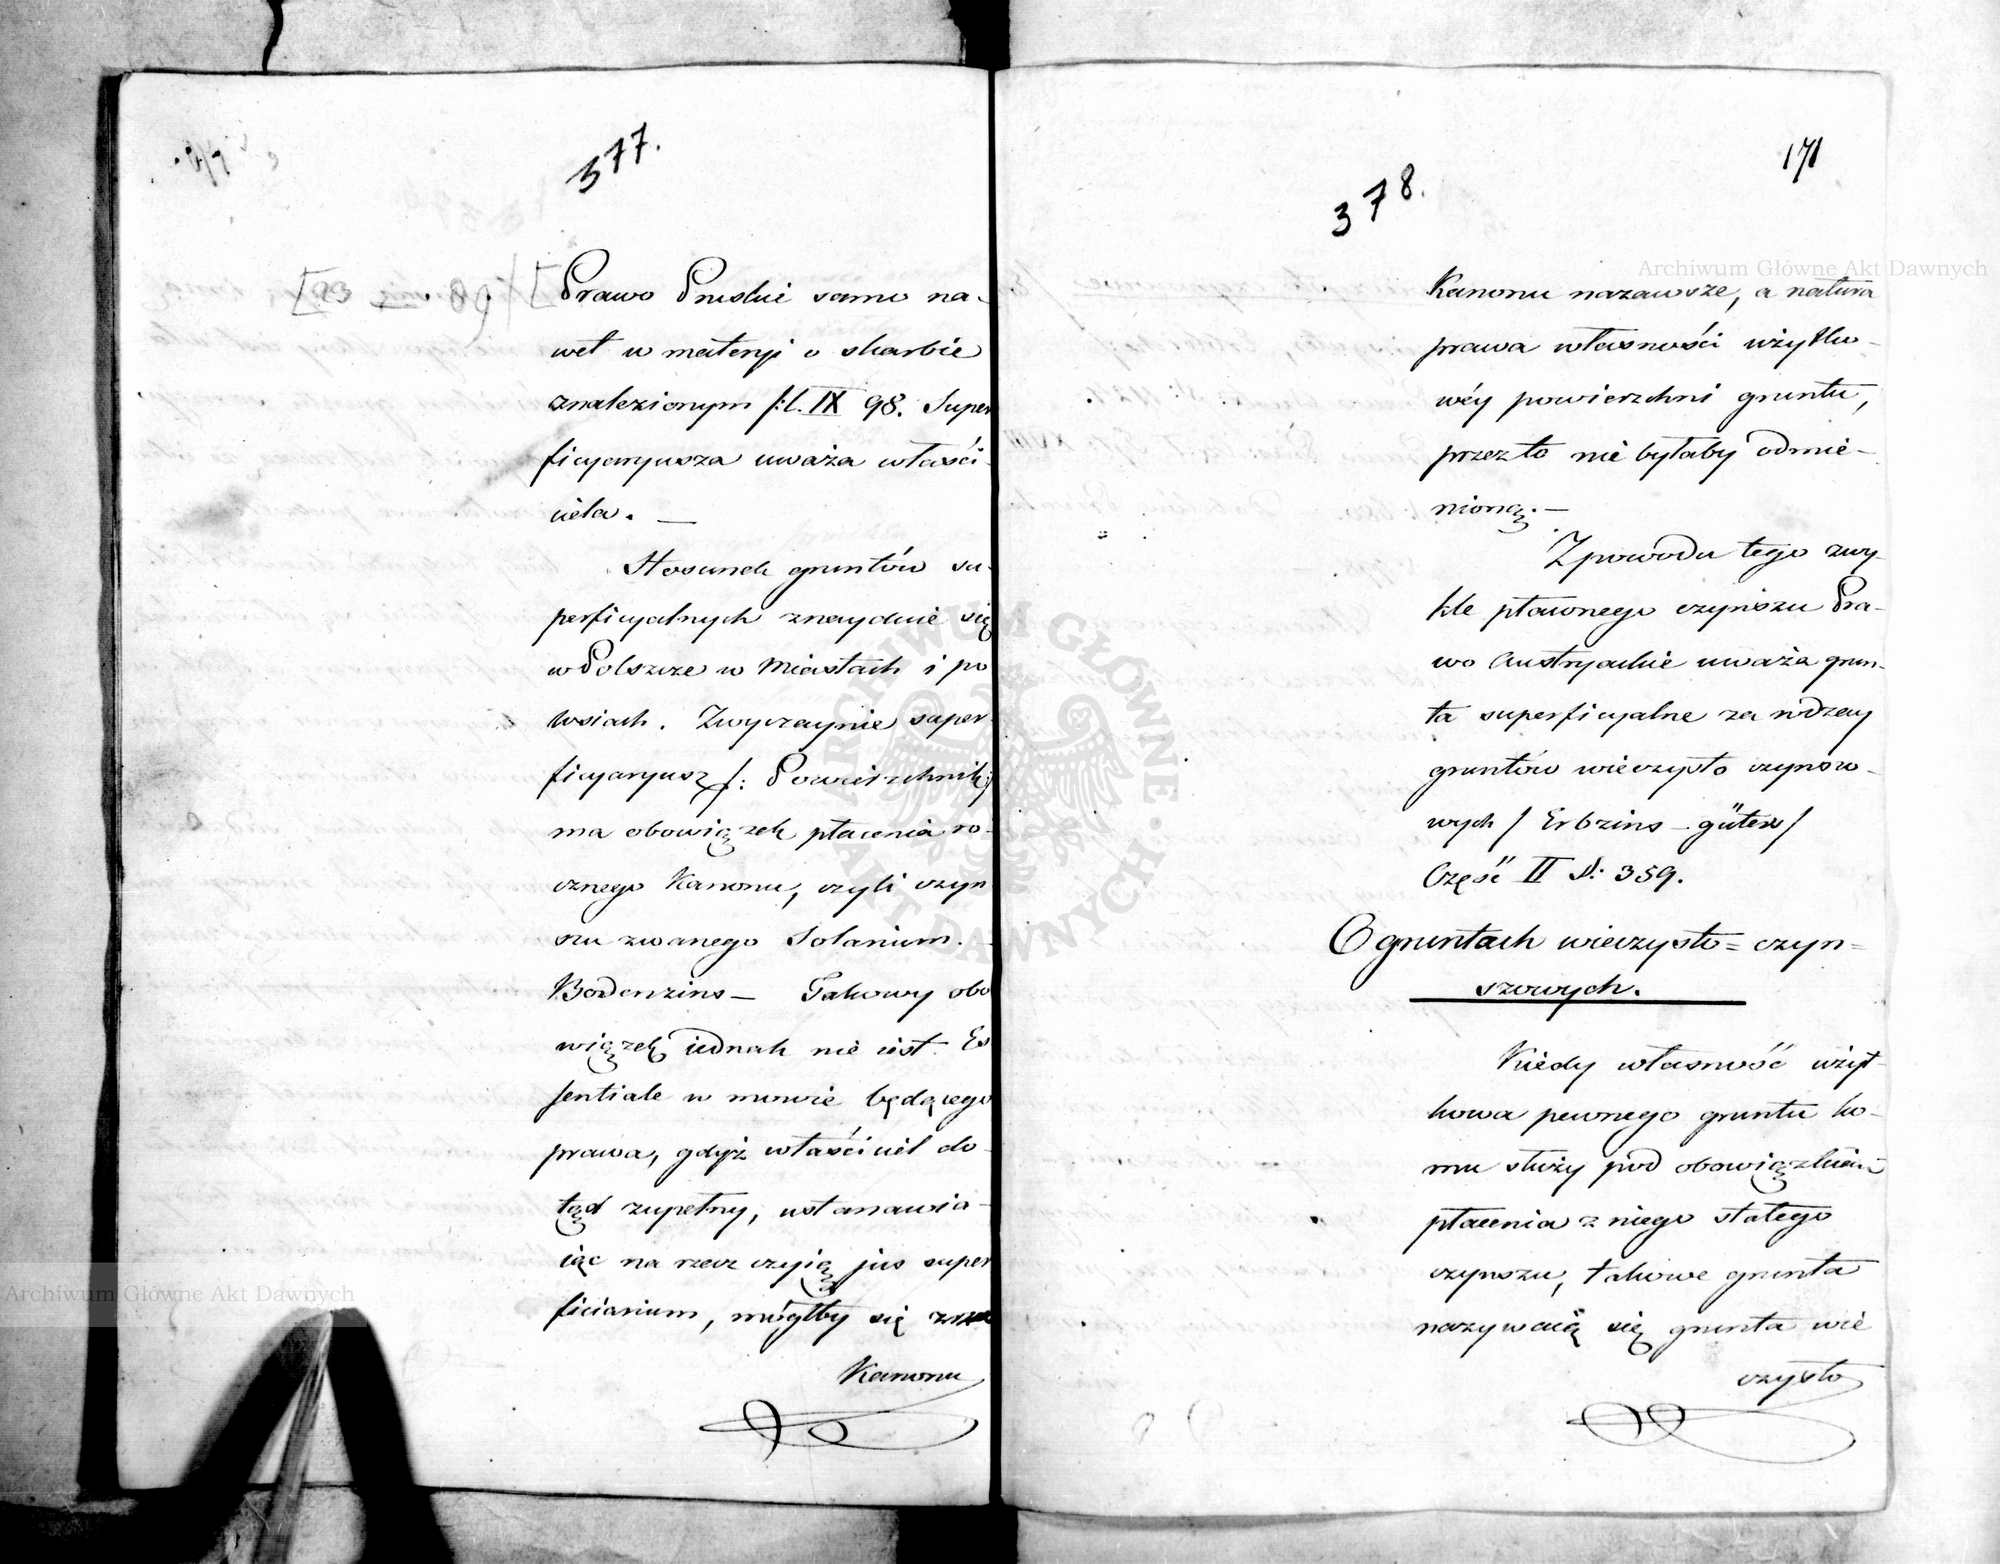 377.
Prawo Pruskie samo na-
wet w materyi o skarbie
znalezionym /:l. IX 98. Super
ficyaryusza uważa właści-
ciela. —
Stosunek gruntów su-
perficyalnych znayduie się
w Polszcze w Miastach i po
wsiach. Zwyczaynie super-
ficyaryusz /: Powierzchnik:/
ma obowiązek płacenia ro-
cznego Kanonu, czyli czyn
szu zwanego Solarium.
Bodenzins — Takowy obo
wiązek iednak nie iest Es
sentiale w mowie będącego
prawa, gdyż właściciel do-
tąd zupełny, ustanawia-
iąc na rzecz czyią jus super
ficiarium, mógłby się
Kanonu
171
378.
Kanonu nazawsze, a natura
prawa własności użytko-
wéy powierzchni gruntu,
przez to nie byłaby odmie-
nioną. —
Z powodu tego zwy-
kle płatnego czynszu Pra-
wo Austryackie uważa grun-
ta superficyalne za rodzay
gruntów wieczysto czynszo-
wych / Erbzins - güter /
Część II §: 359.
O gruntach wieczysto = czyn=
szowych.
Kiedy własność użyt-
kowa pewnego gruntu ko-
mu służy pod obowiązkiem
płacenia z niego stałego
czynszu, takowe grunta
nazywaią się grunta wie
czysto
Archiwum Główne Akt Dawnych
Archiwum Główne Akt Dawnych
ARCHIWUM GŁÓWNE AKT DAWNYCH